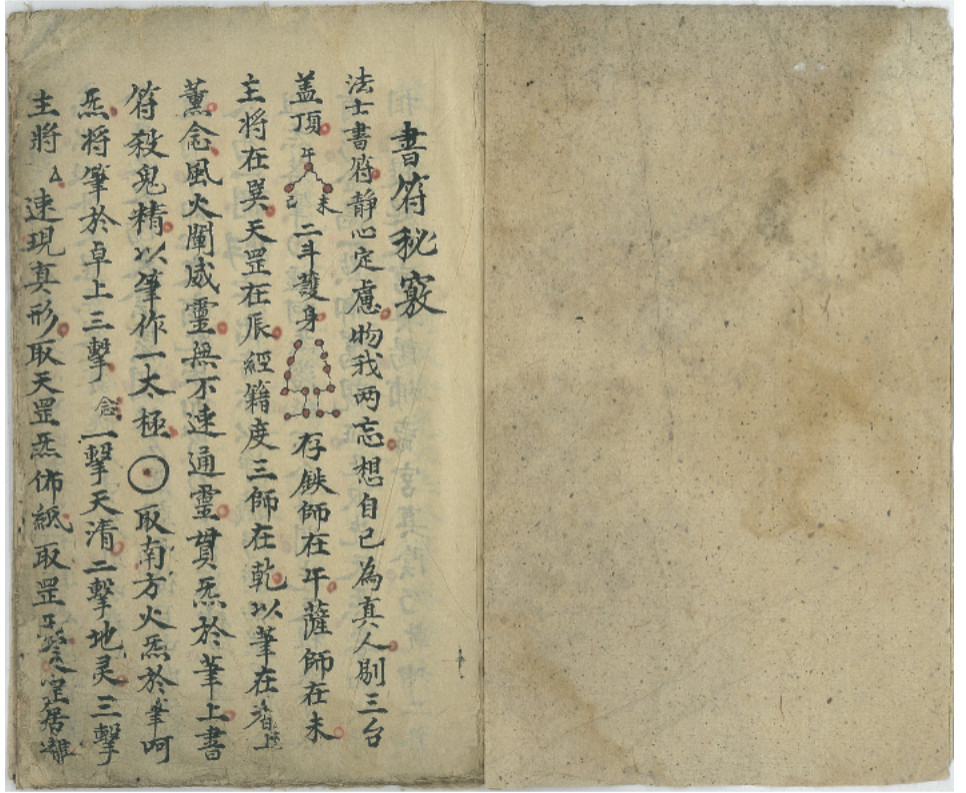 書符秘竅
法士書符静心定慮物我两忘想自己為真人剔三台
盖頂 午 未 己 二斗護身 存鉄師在午薩師在未
主將在巽天罡在辰經籍度三師在乾以筆在香上
薰念風火闡威靈無不速通靈貫炁於筆上書
符殺鬼精以筆作一太極 取南方火炁於筆呵
炁將筆於卓上三擊 念 一擊天清二擊地灵三擊
主將 速現真形取天罡炁佈紙取罡炁 定居離